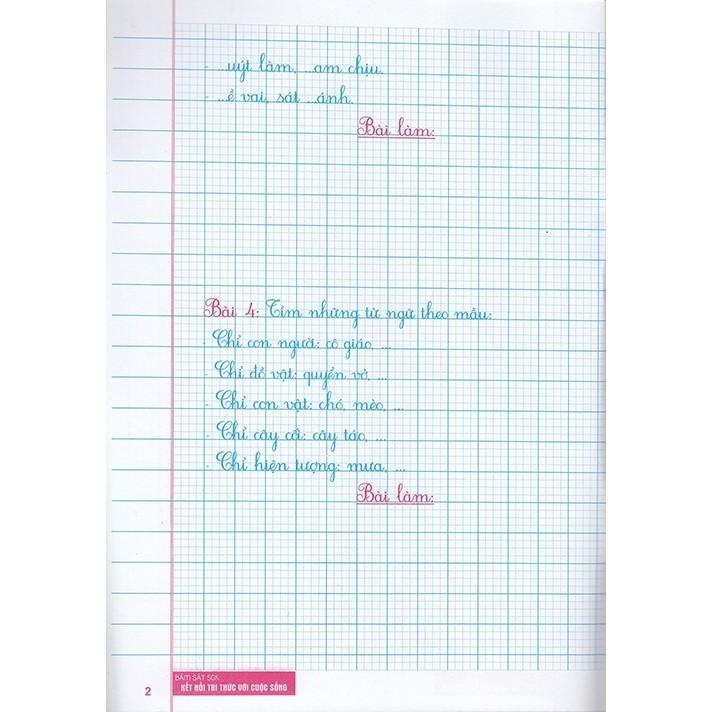 - ...uýt làm, ...am chịu.
- ...ề vai, sát ...ánh.
Bài làm:
Bài 4: Tìm những từ ngữ theo mẫu:
- Chỉ con người: cô giáo, ...
- Chỉ đồ vật: quyển vở, ...
- Chỉ con vật: chó, mèo, ...
- Chỉ cây cối: cây táo, ...
- Chỉ hiện tượng: mưa, ...
Bài làm:
2
BÁM SÁT SGK
KẾT NỐI TRI THỨC VỚI CUỘC SỐNG